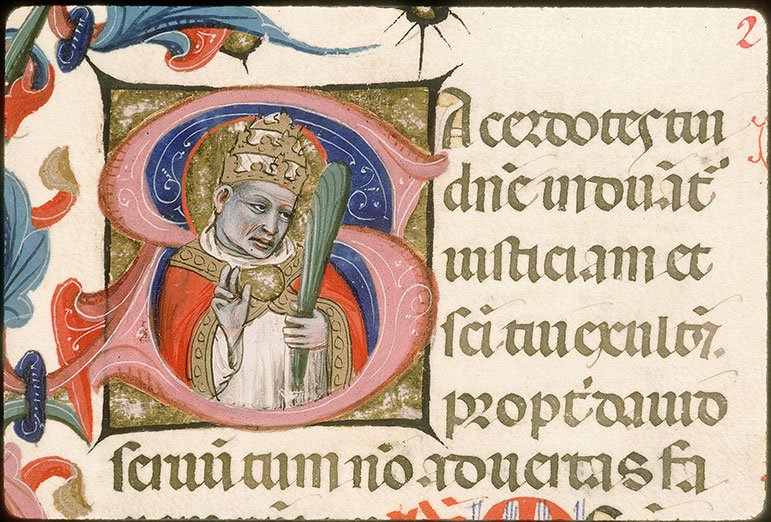 2
SAcerdotes tui
dn̄e induāt
iusticiam et
sc̄i tui exultēt.
propt̄ dauid
seruū tuum nō aduertas fa